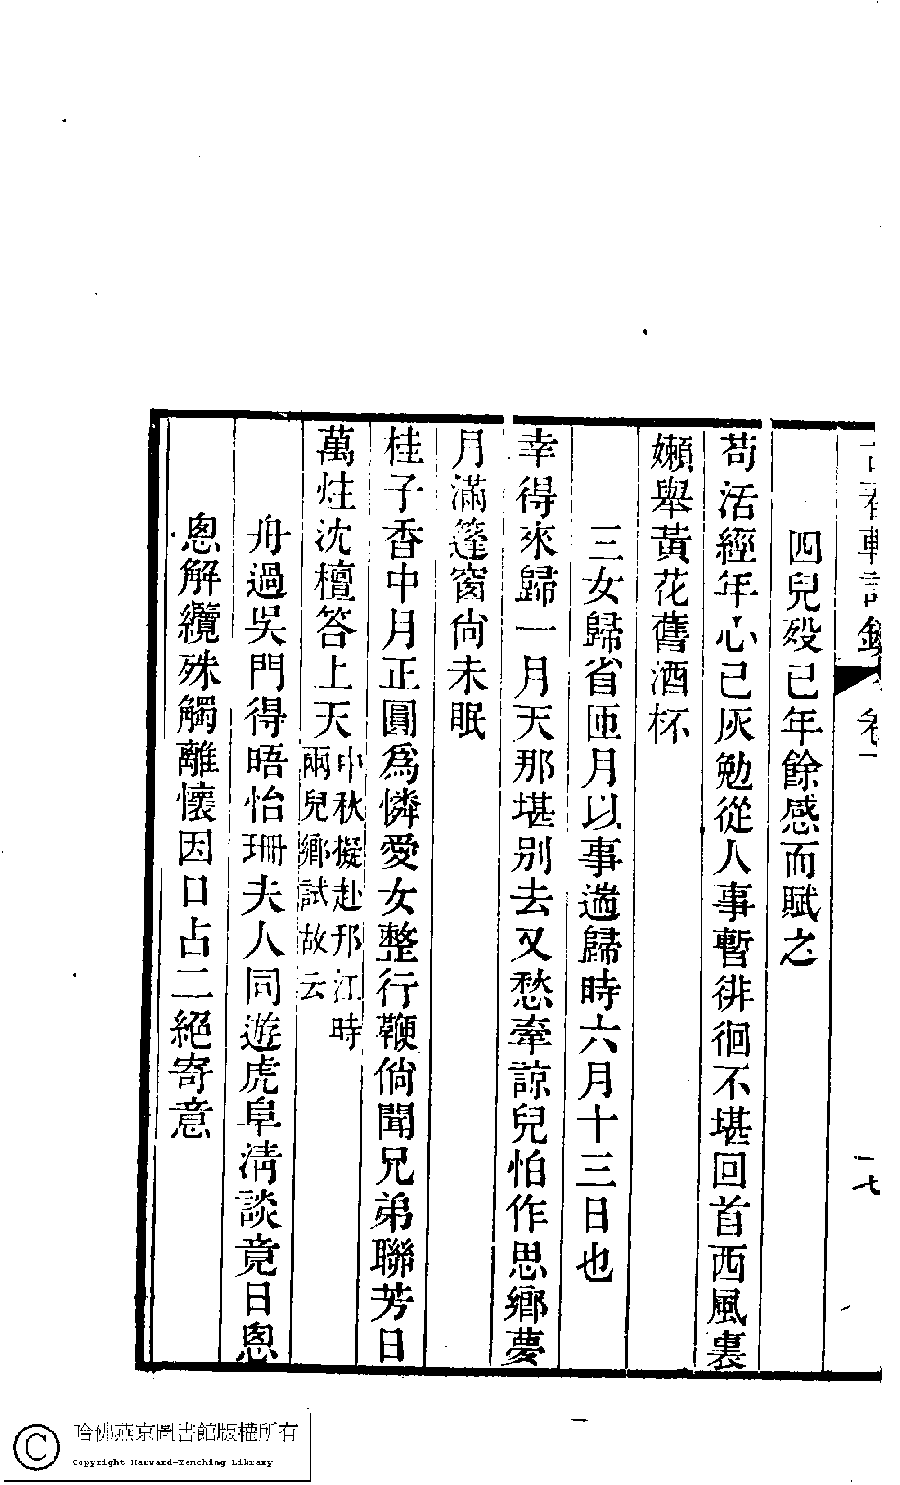 古春軒詩鈔 卷上 十七
四兒歿已年餘感而賦之
苟活經年心已灰勉從人事暫徘徊不堪回首西風裏
嬾舉黃花舊酒杯
三女歸省匝月以事遄歸時六月十三日也
幸得來歸一月天那堪別去又愁牽諒兒怕作思鄉夢
月滿篷窗尙未眠
桂子香中月正圓爲憐愛女整行鞭倘聞兄弟聯芳日
萬炷沈檀答上天中秋擬赴邗江時
兩兒鄉試故云
舟過吳門得晤怡珊夫人同遊虎阜淸談竟日悤
悤解纜殊觸離懷因口占二絕寄意
哈佛燕京圖書館版權所有
Copyright Harvard-Yenching Library